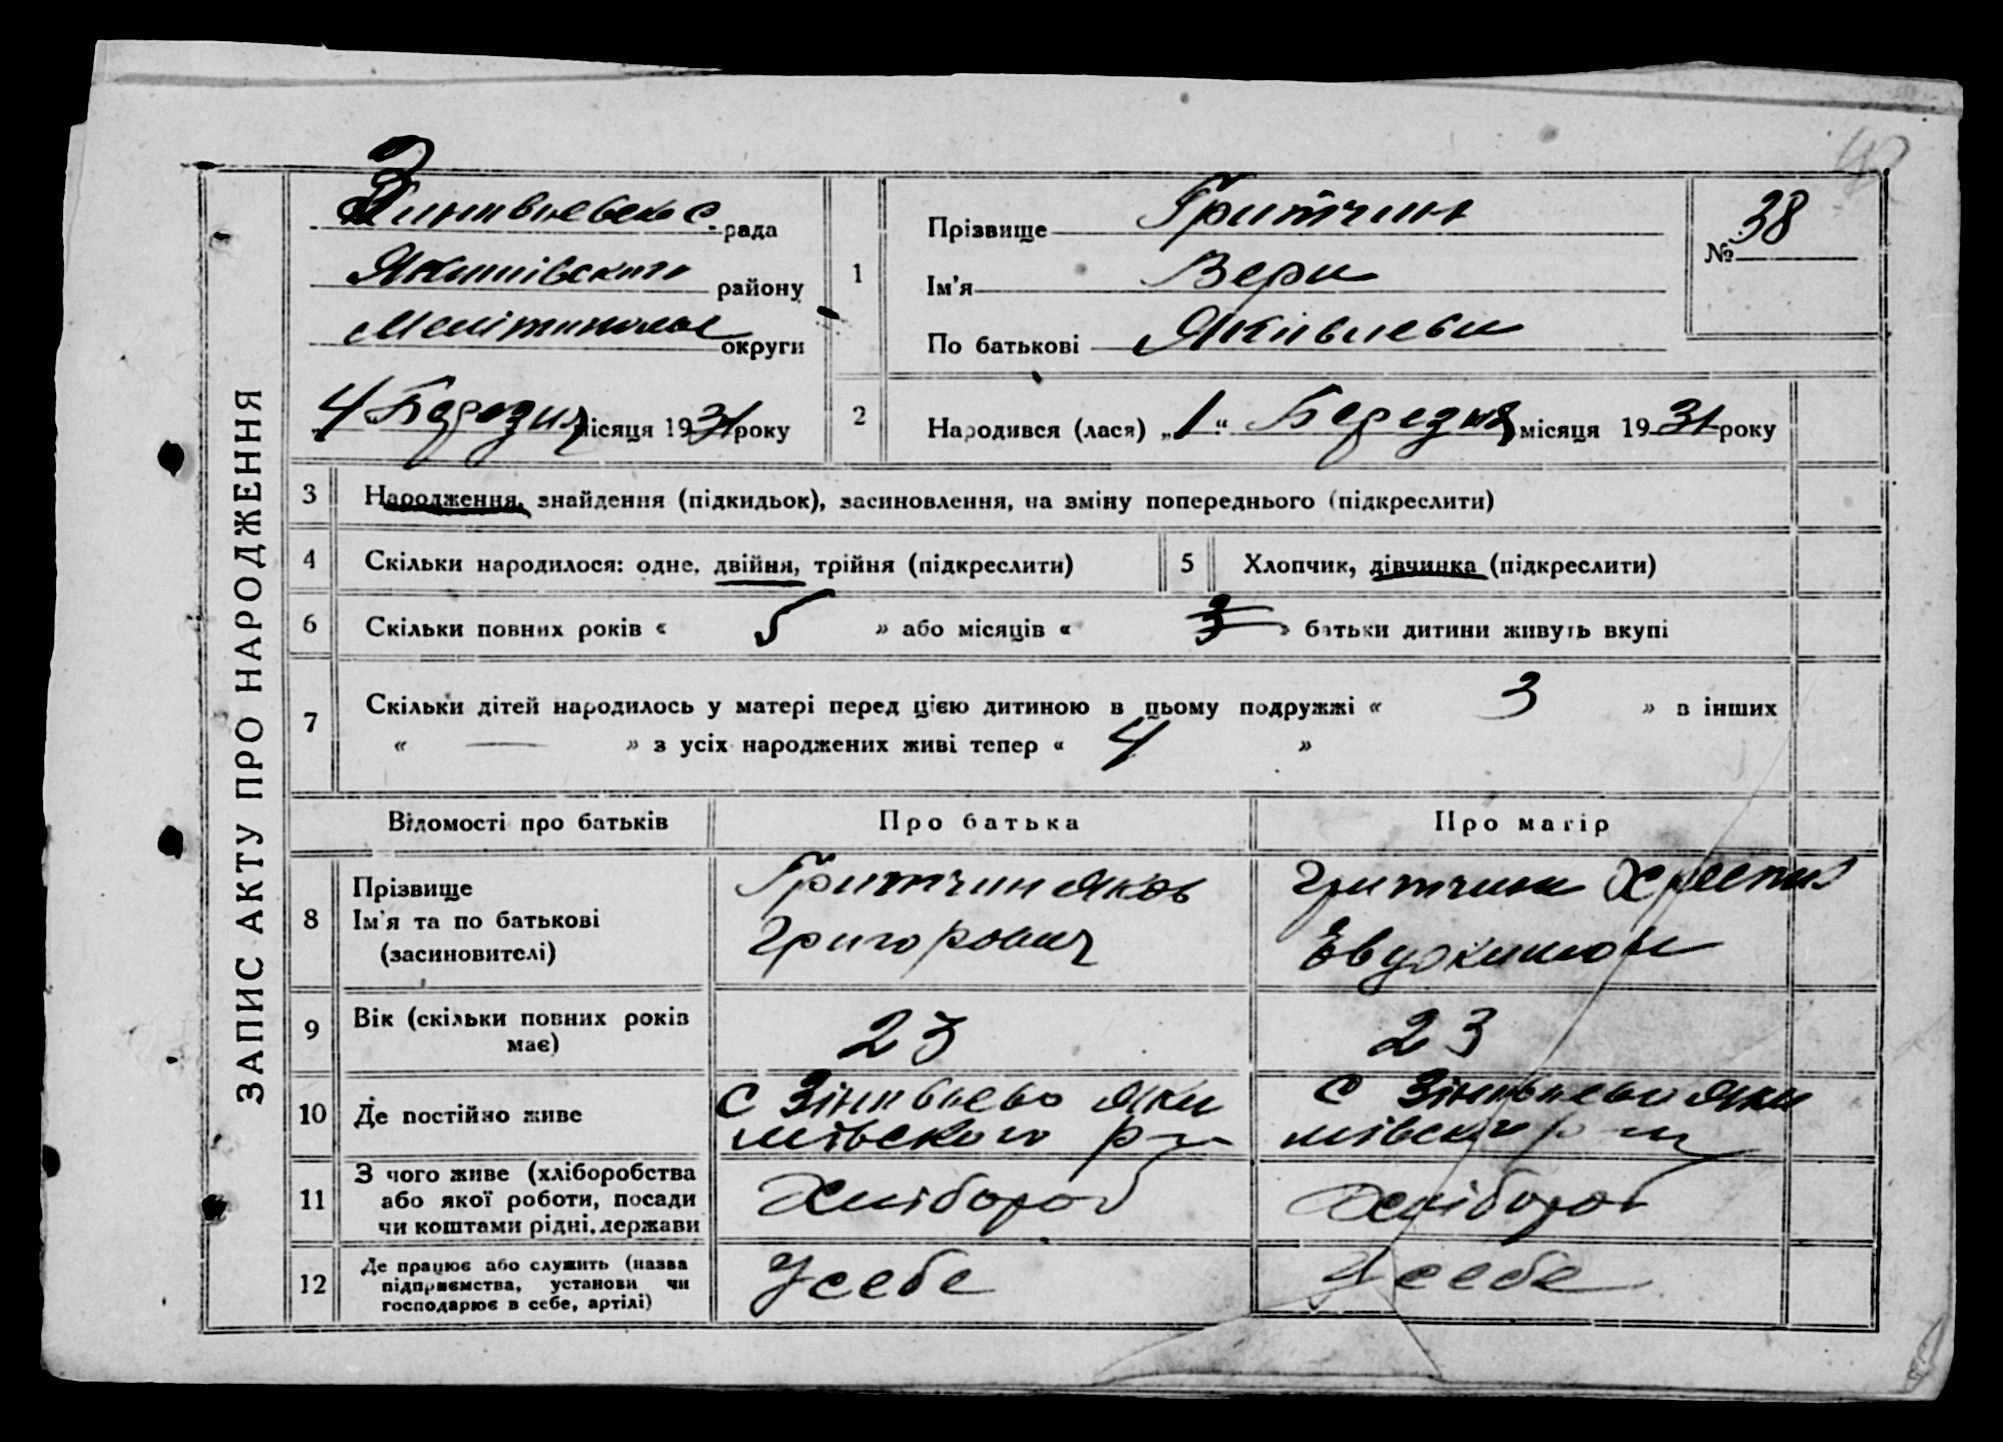 ЗАПИС АКТУ ПРО НАРОДЖЕННЯ
рада
району
округи
4 Березня місяця 1931 року
1
Прізвище Гритчин
Ім'я Вери
По батькові Яківлеви
№ 38
2
Народився (лася) „1“ Березня місяця 1931 року
3 Народження, знайдення (підкидьок), засиновлення, на зміну попереднього (підкреслити)
4 Скільки народилося: одне, двійня, трійня (підкреслити)
5 Хлопчик, дівчинка (підкреслити)
6 Скільки повних років « 5 » або місяців « 3 » батьки дитини живуть вкупі
7 Скільки дітей народилось у матері перед цією дитиною в цьому подружжі « 3 » в інших
« — » з усіх народжених живі тепер « 4 »
Відомості про батьків
Про батька
Про матір
8 Прізвище
Ім'я та по батькові
(засиновителі)
Гритчин Яков
Григорович
Гритчина
9 Вік (скільки повних років
має)
23
23
10 Де постійно живе
с Зінивьево Яки
мівського р-н
с Зінивьево Яки
11 З чого живе (хліборобства
або якої роботи, посади
чи коштами рідні, держави
Хлібороб
Хлібороб
12 Де працює або служить (назва
підприємства, установи чи
господарює в себе, артілі)
У себе
У себе